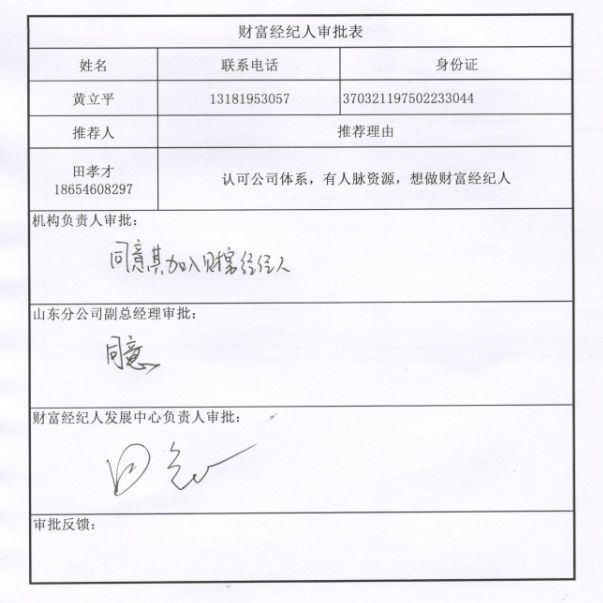 财富经纪人审批表
姓名 联系电话 身份证
黄立平 13181953057 370321197502233044
推荐人 推荐理由
田孝才
18654608297
认可公司体系，有人脉资源，想做财富经纪人
机构负责人审批：
同意其加入财富经纪人
山东分公司副总经理审批：
同意
财富经纪人发展中心负责人审批：
同意
审批反馈：